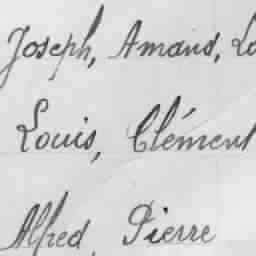 Joseph, Amand,
Louis, Clément
Alfred, Pierre